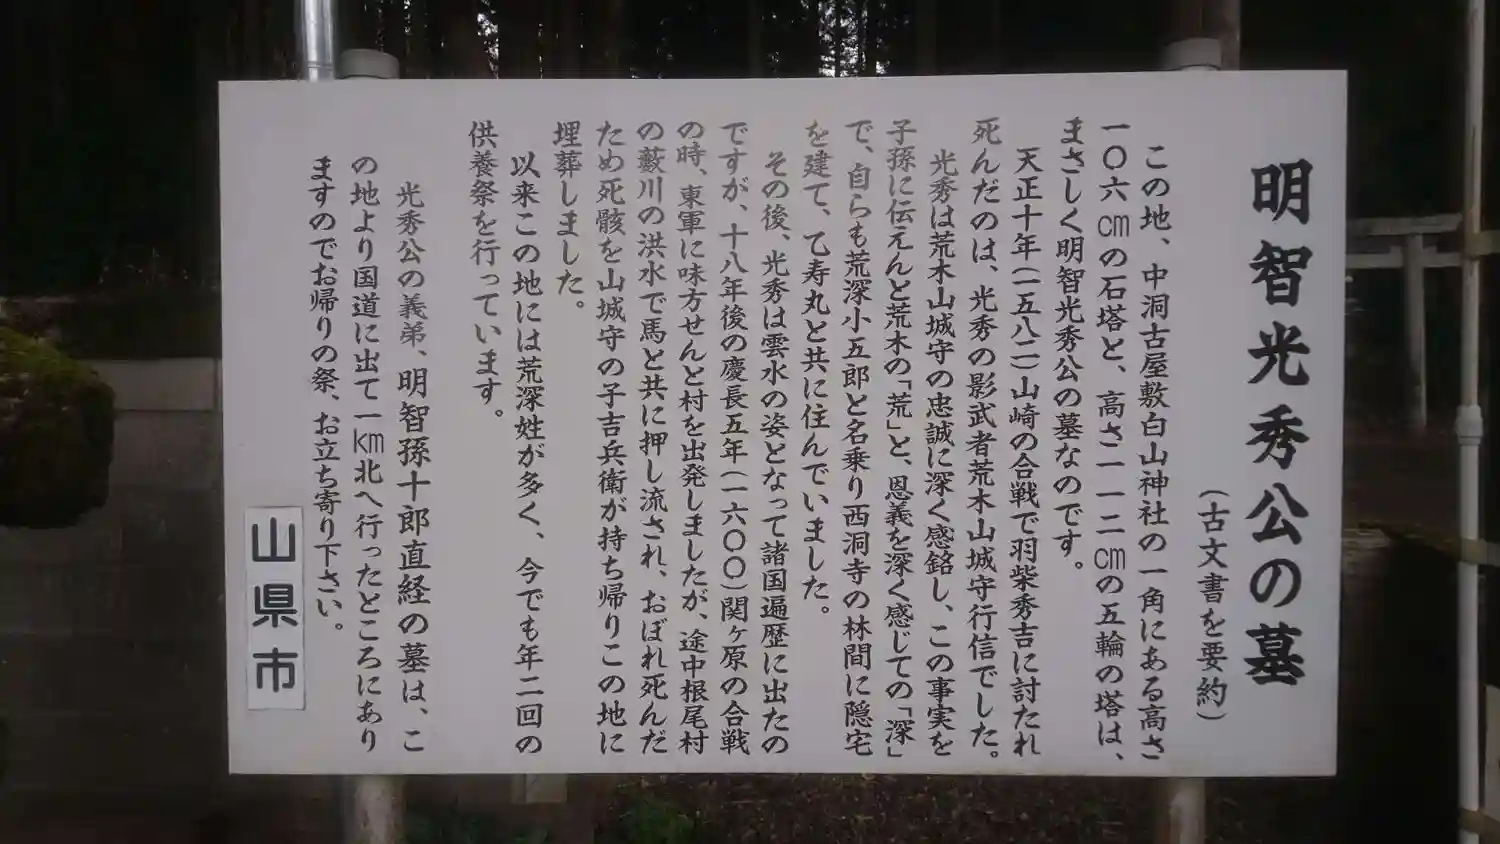 明智光秀公の墓
（古文書を要約）
この地、中洞古屋敷白山神社の一角にある高さ
一〇六㎝の石塔と、高さ一一二㎝の五輪の塔は、
まさしく明智光秀公の墓なのです。
天正十年（一五八二）山崎の合戦で羽柴秀吉に討たれ
死んだのは、光秀の影武者荒木山城守行信でした。
光秀は荒木山城守の忠誠に深く感銘し、この事実を
子孫に伝えんと荒木の「荒」と、恩義を深く感じての「深」
で、自らも荒深小五郎と名乗り西洞寺の林間に隠宅
を建て、乙寿丸と共に住んでいました。
その後、光秀は雲水の姿となって諸国遍歴に出たの
ですが、十八年後の慶長五年（一六〇〇）関ヶ原の合戦
の時、東軍に味方せんと村を出発しましたが、途中根尾村
の藪川の洪水で馬と共に押し流され、おぼれ死んだ
ため死骸を山城守の子吉兵衛が持ち帰りこの地に
埋葬しました。
以来この地には荒深姓が多く、今でも年二回の
供養祭を行っています。
光秀公の義弟、明智孫十郎直経の墓は、こ
の地より国道に出て一㎞北へ行ったところにあり
ますのでお帰りの祭、お立ち寄り下さい。
山県市